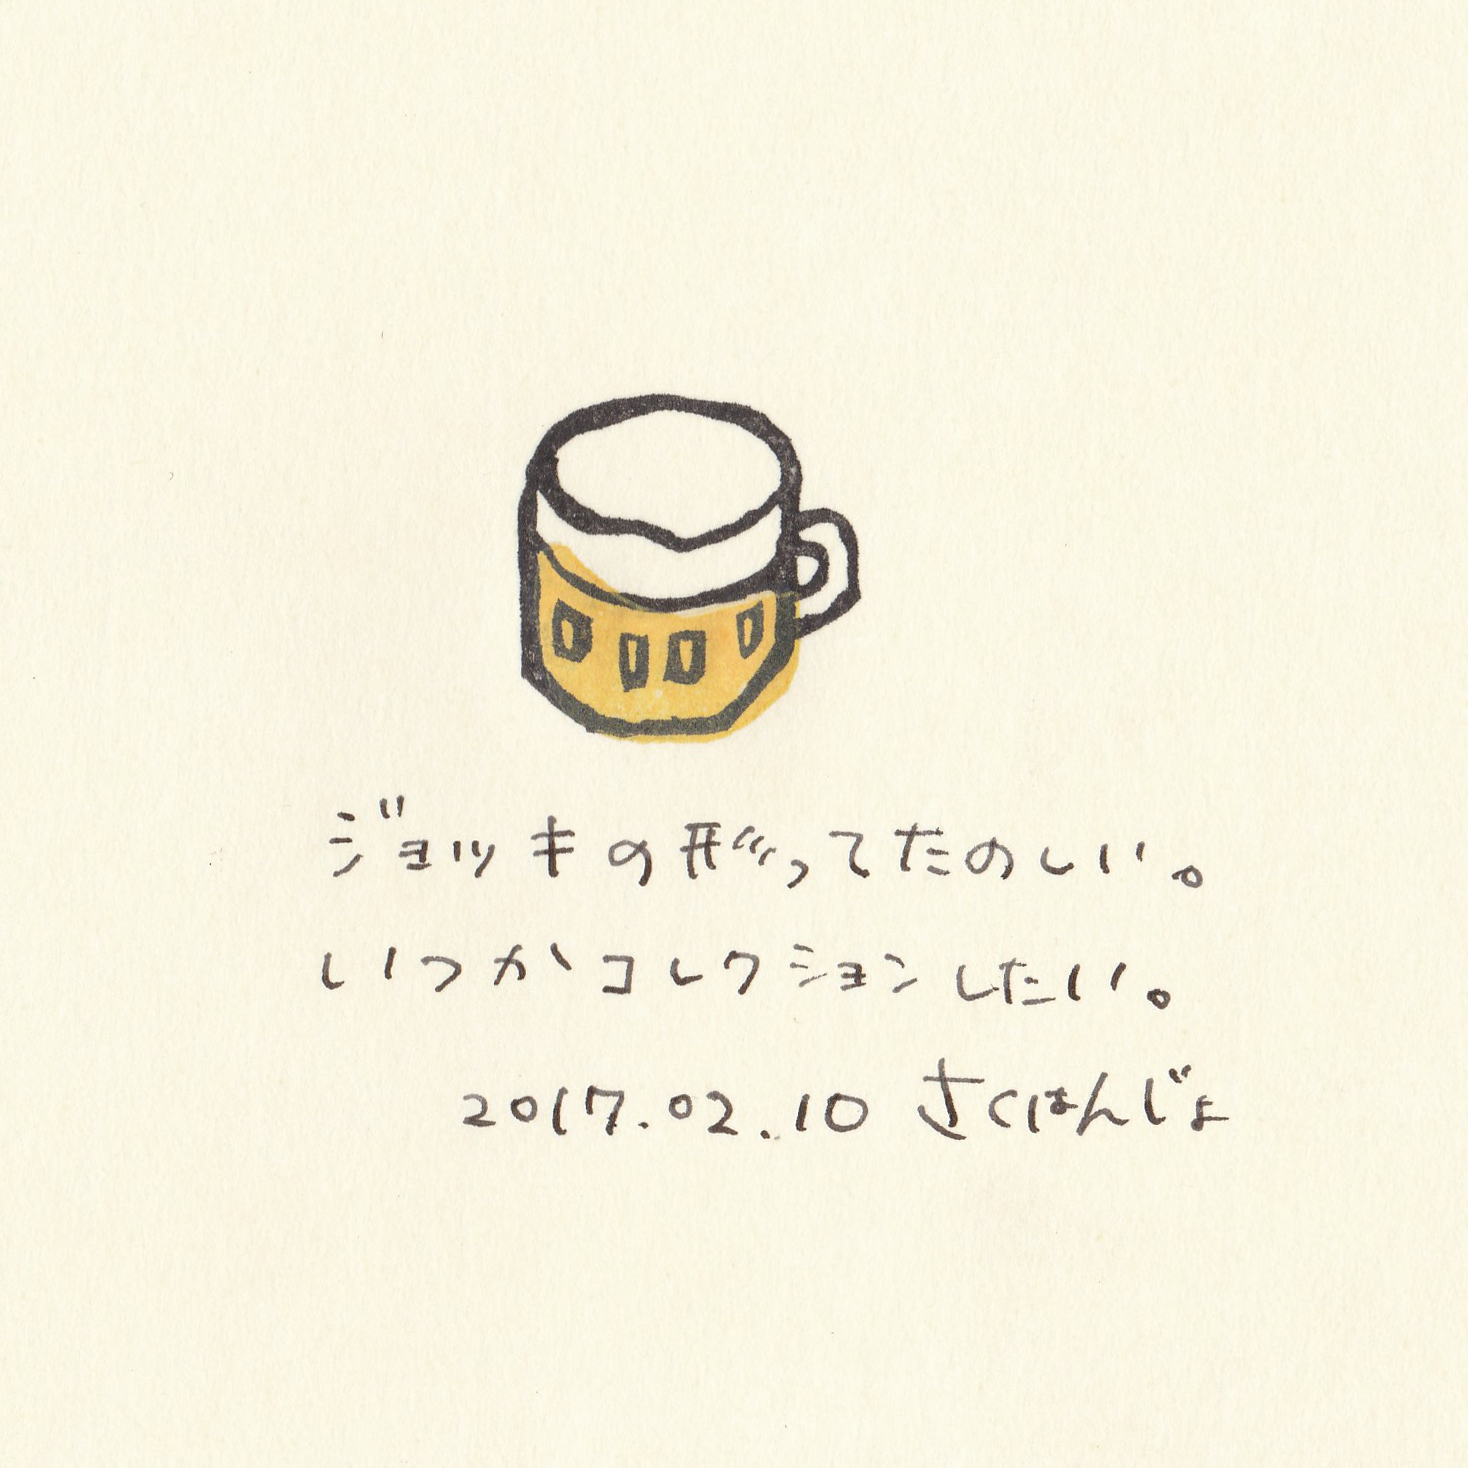 ジョッキの形ってたのしい。
いつかコレクションしたい。
2017.02.10 さくはんじょ